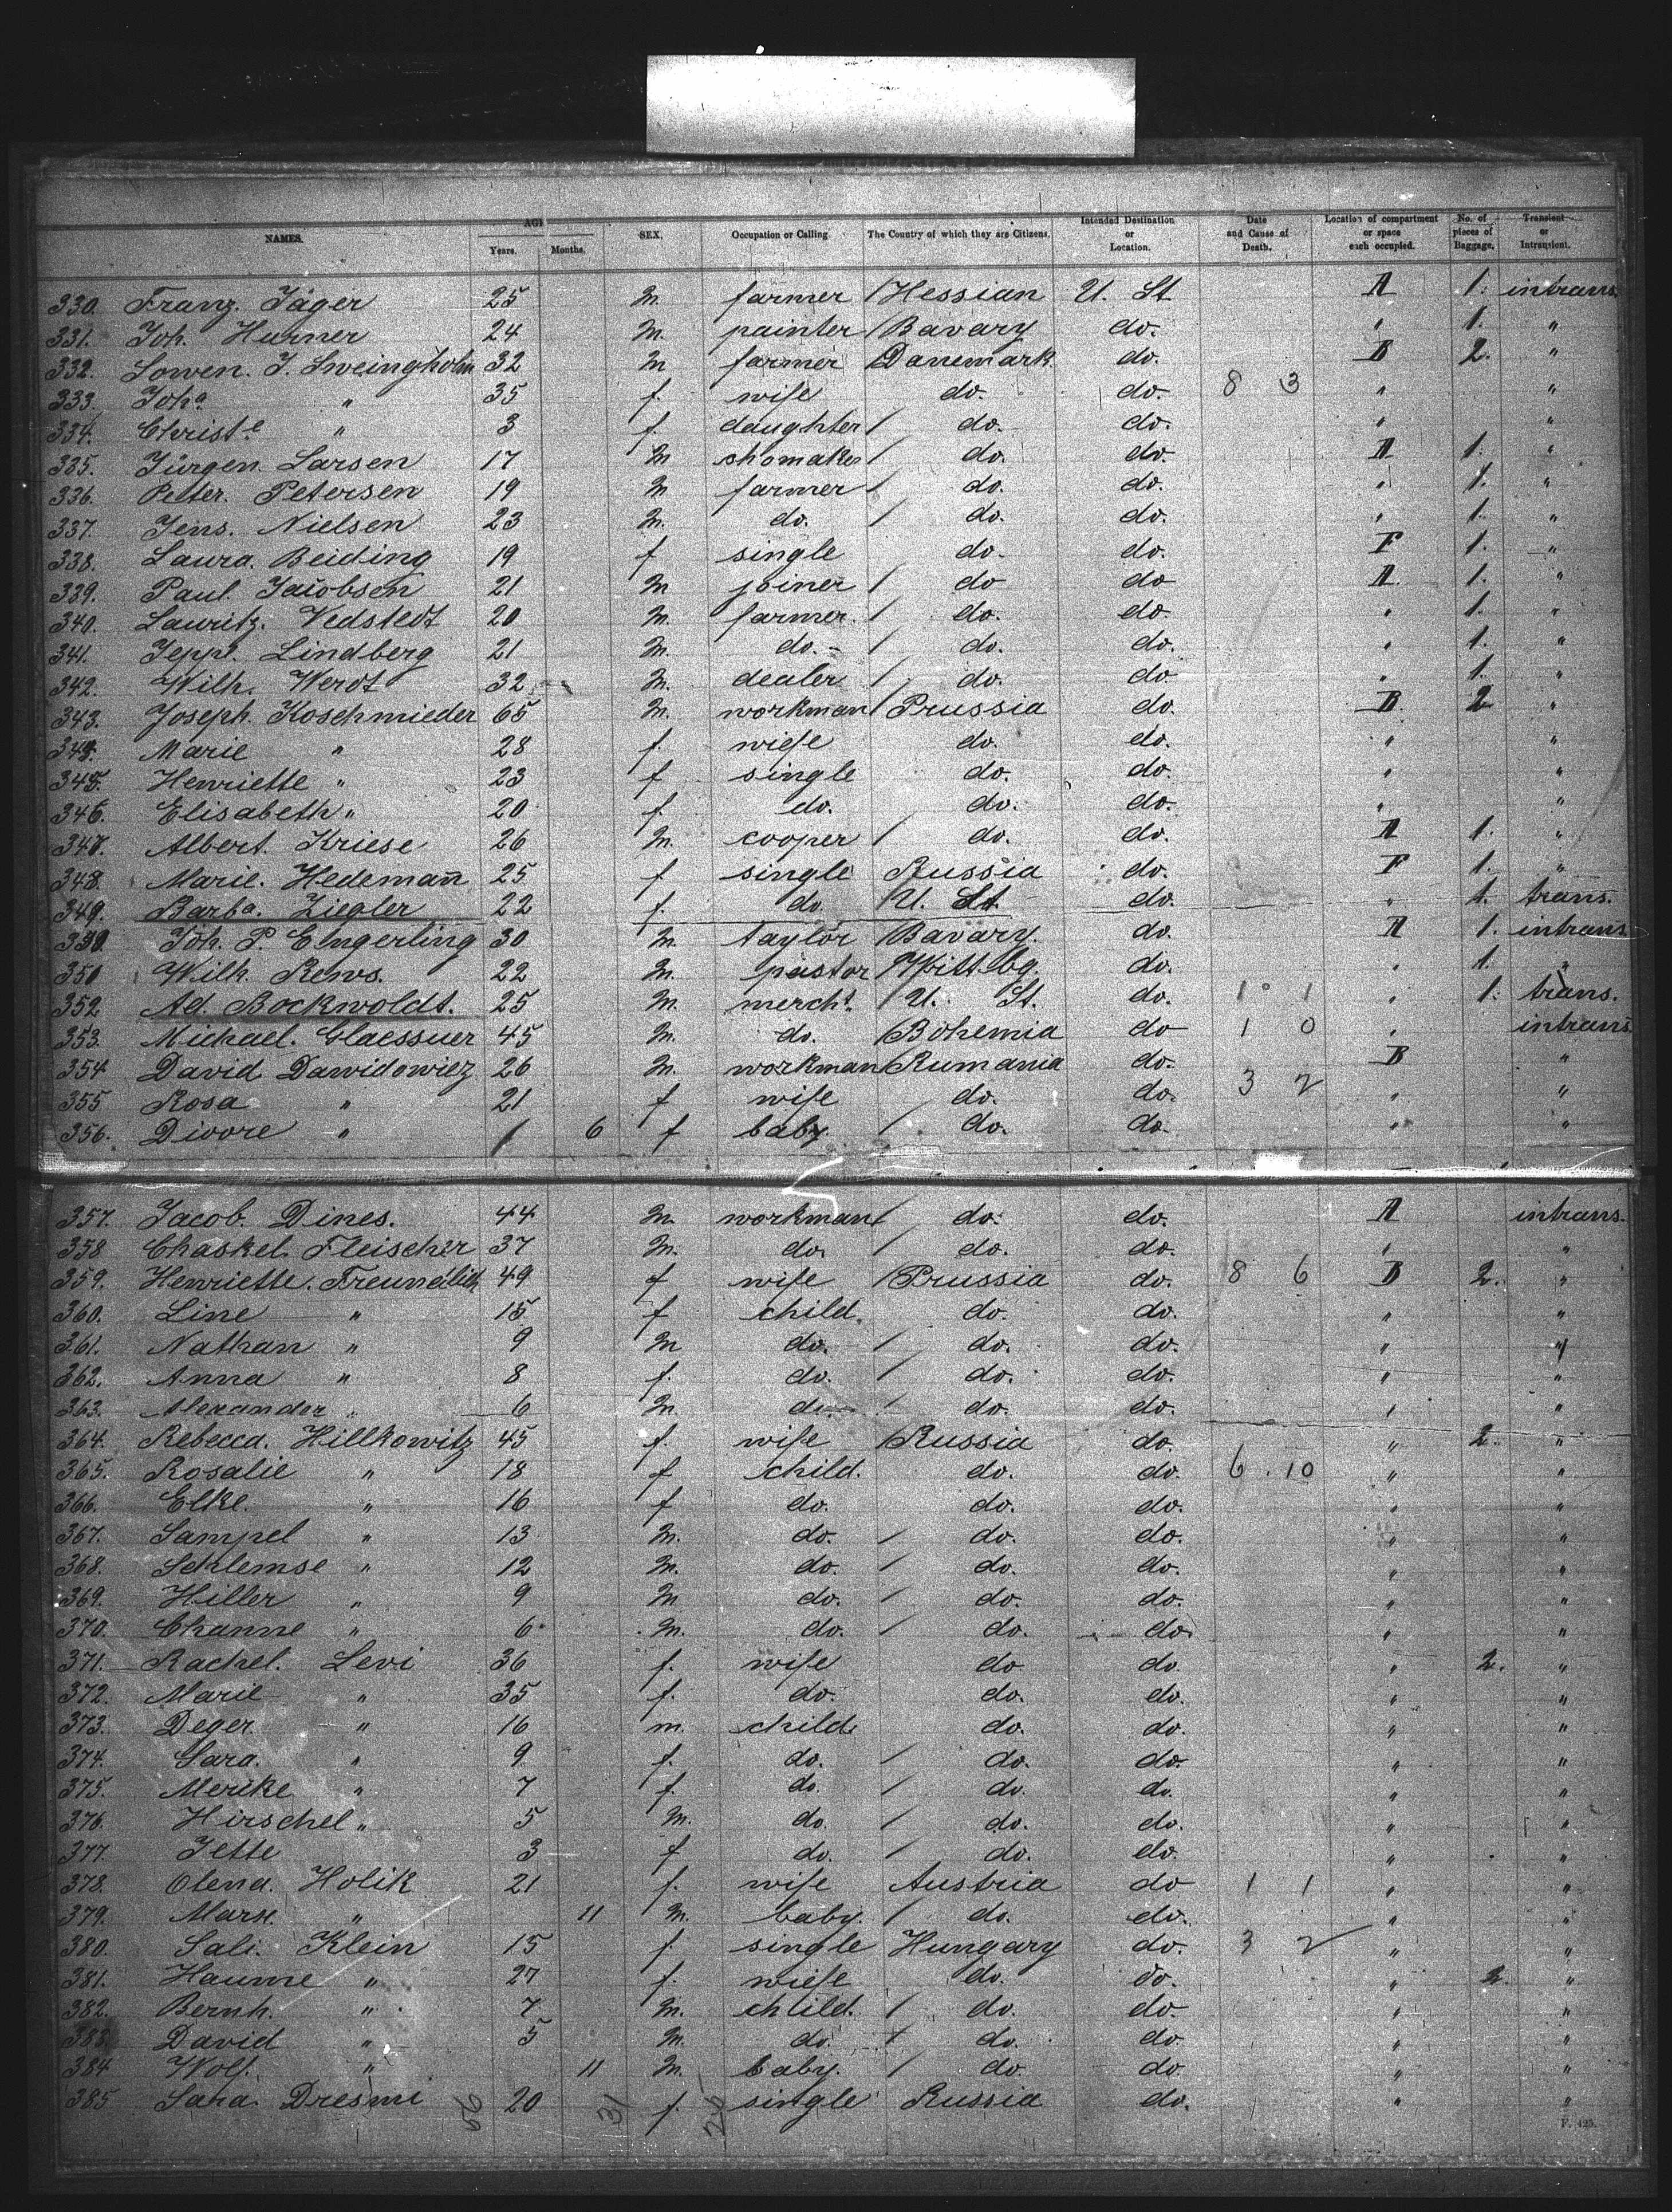 NAMES. AGE Years. Months. SEX. Occupation or Calling The Country of which they are Citizens. Intended Destination or Location. Date and Cause of Death. Location of compartment or space each occupied. No. of pieces of Baggage. Transient or Intransient.
330. Franz. Jäger 25 m. farmer / Hessian U. St A 1. intrans
331. Joh. Hurner 24 m. painter / Bavary do. " 1. "
332. Sowen. J. Sweingholm 32 m farmer / Danemark. do. B 2. "
333. Joha. " 35 f. wife do. do. 8 3 " "
334. Christe " 3 f. daughter / do. do. " "
335. Jürgen. Larsen 17 m shomaker / do. do. A 1. "
336. Petter. Petersen 19 m farmer / do. do. " 1. "
337. Jens. Nielsen 23 m. do. / do. do. " 1. "
338. Laura. Beiding 19 f single do. do. F 1. "
339. Paul. Jacobsen 21 m joiner / do do A. 1. "
340. Lauritz. Vedstedt 20 m. farmer. / do. do. " 1. "
341. Jepp. Lindberg 21 m. do. / do. do. " 1. "
342. Wilh. Werdt 32 m. dealer / do. do " 1. "
343. Joseph. Koschmieder 65 m. workman / Prussia do. B. 2 "
344. Marie " 28 f. wiefe do. do. " "
345. Henriette " 23 f single do. do. " "
346. Elisabeth " 20 f. do. do. do. " "
347. Albert. Kriese 26 m. cooper / do. do. A 1. "
348. Marie. Hedemann 25 f single Russia do. F 1. "
349. Barba. Ziegler 22 f. do U. St. do. " 1. trans.
350. Joh. P. Engerling 30 m. taylor / Bavary. do. A 1. intrans
350 Wilh. Rews. 22 m. pastor / Wittbg. do. " 1. "
352 Ad. Bockwoldt. 25 m. mercht. / U. St. do. 1 1 " 1. trans.
353. Michael. Glaessuer 45 m. do. / Bohemia do 1 0 " intrans
354 David Dawidowiez 26 m. workman / Rumania do. B "
355 Rosa " 21 f wife do. do. 3 2 " "
356. Divore " / 6 f baby. / do. do. " "
357. Jacob. Dines. 44 m. workman / do. do. A intrans.
358 Chaskel. Fleischer 37 m. do. / do. do. " "
359. Henriette. Freundlich 49 f wife / Prussia do. 8 6 B 2. "
360. Line " 15 f child. do. do. " "
361. Nathan " 9 m do. / do. do. " "
362. Anna " 8 f. do. / do. do. " "
363. Alexander " 6 m. do. / do. do. " "
364. Rebecca. Hillkowitz 45 f. wife / Russia do. " 2. "
365. Rosalie " 18 f child. do. do. 6 . 10 " "
366. Elke. " 16 f do. do. do. " "
367. Sampel " 13 m. do. / do. do. " "
368. Schlemse " 12 m. do. / do. do. " "
369. Hiller " 9 m do. / do. do. " "
370. Channe " 6 m. do. / do. do. " "
371. Rachel. Levi 36 f. wife do do. " 2. "
372. Marie " 35 f. do. do. do. " "
373. Deger. " 16 m. child do. do. " "
374. Sara. " 9 f. do. / do. do. " "
375. Merike " 7 f. do. / do. do. " "
376. Hirschel " 5 m. do. / do. do. " "
377. Jette 3 f do. / do. do. " "
378. Olena. Holik 21 f. wife Austria do 1 1 " "
379. Marx. " 11 m. baby. / do. do. " "
380. Sali. Klein 15 f. single Hungary do. 3 2 " "
381. Haume " 27 f. wiefe do. do. " 2. "
382. Bernh. " 7 m. chlild. / do. do. " "
383. David " 5 m. do. / do. do. " "
384 Wolf. " 11 m. baby. / do. do. " "
385 Sara. Dresmi 20 f. single Russia do. " "
F. 425.